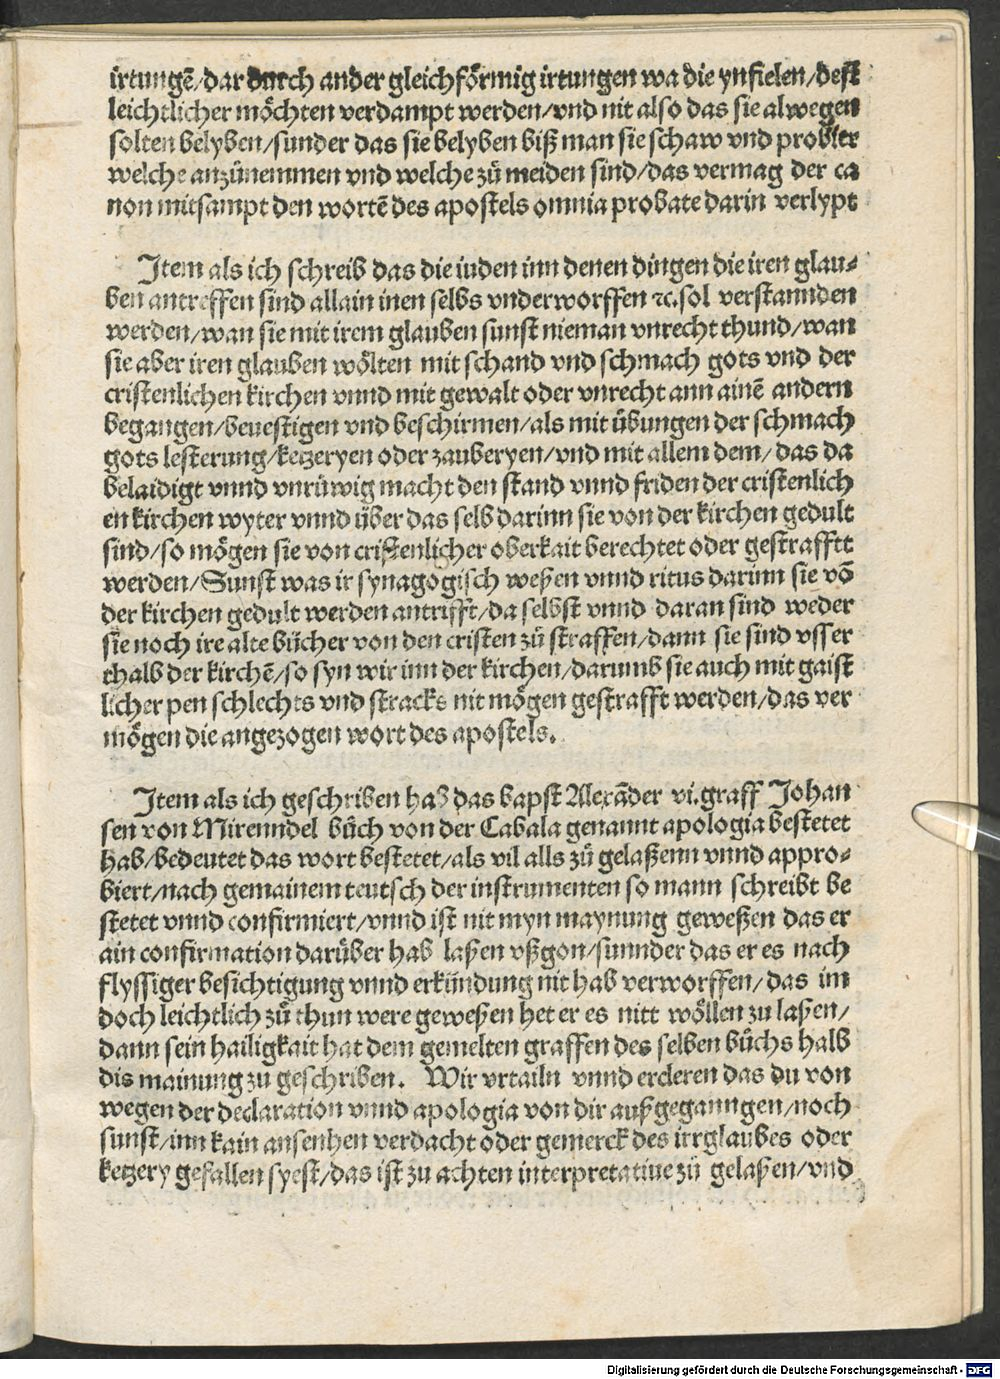 irtungē/dar durch ander gleichförmig irtungen wa die ynfielen/dest
leichtlicher möchten verdampt werden/vnd nit also das sie alwegen
solten belyben/sunder das sie belyben biß man sie schaw vnd probier
welche anzůnemmen vnd welche zů meiden sind/das vermag der ca
non mitsampt den wortē des apostels omnia probate darin verlypt
Item als ich schreib das die iuden inn denen dingen die iren glau⸗
ben antreffen sind allain inen selbs vnderworffen ꝛc.sol verstannden
werden/wan sie mit irem glauben sunst nieman vnrecht thund/wan
sie aber iren glauben wölten mit schand vnd schmach gots vnd der
cristenlichen kirchen vnnd mit gewalt oder vnrecht ann ainē andern
begangen/beuestigen vnd beschirmen/als mit übungen der schmach
gots lesterung/ketzeryen oder zauberyen/vnd mit allem dem/das da
belaidigt vnnd vnrüwig macht den stand vnnd friden der cristenlich
en kirchen wyter vnnd über das selb darinn sie von der kirchen gedult
sind/so mögen sie von cristenlicher oberkait berechtet oder gestrafftt
werden/Sunst was ir synagogisch weßen vnnd ritus darinn sie vō
der kirchen gedult werden antrifft/da selbst vnnd daran sind weder
sie noch ire alte bücher von den cristen zů straffen/dann sie sind vsser
thalb der kirchē/so syn wir inn der kirchen/darumb sie auch mit gaist
licher pen schlechts vnd stracks nit mögen gestrafft werden/das ver
mögen die angezogen wort des apostels.
Item als ich geschriben hab das bapst Alexāder vi.graff Johan
sen von Mirenndel bůch von der Cabala genannt apologia bestetet
hab/bedeutet das wort bestetet/als vil alls zů gelaßenn vnnd appro⸗
biert/nach gemainem teutsch der instrumenten so mann schreibt be
stetet vnnd confirmiert/vnnd ist nit myn maynung geweßen das er
ain confirmation darüber hab laßen vßgon/sunnder das er es nach
flyssiger besichtigung vnnd erkündung nit hab verworffen/das im
doch leichtlich zů thun were geweßen het er es nitt wöllen zu laßen/
dann sein hailigkait hat dem gemelten graffen des selben bůchs halb
dis mainung zu geschriben. Wir vrtailn vnnd ercleren das du von
wegen der declaration vnnd apologia von dir außgeganngen/noch
sunst/inn kain ansenhen verdacht oder gemerck des irrglaubes oder
ketzery gefallen syest/das ist zu achten interpretatiue zů gelaßen/vnd
Digitalisierung gefördert durch die Deutsche Forschungsgemeinschaft - DFG